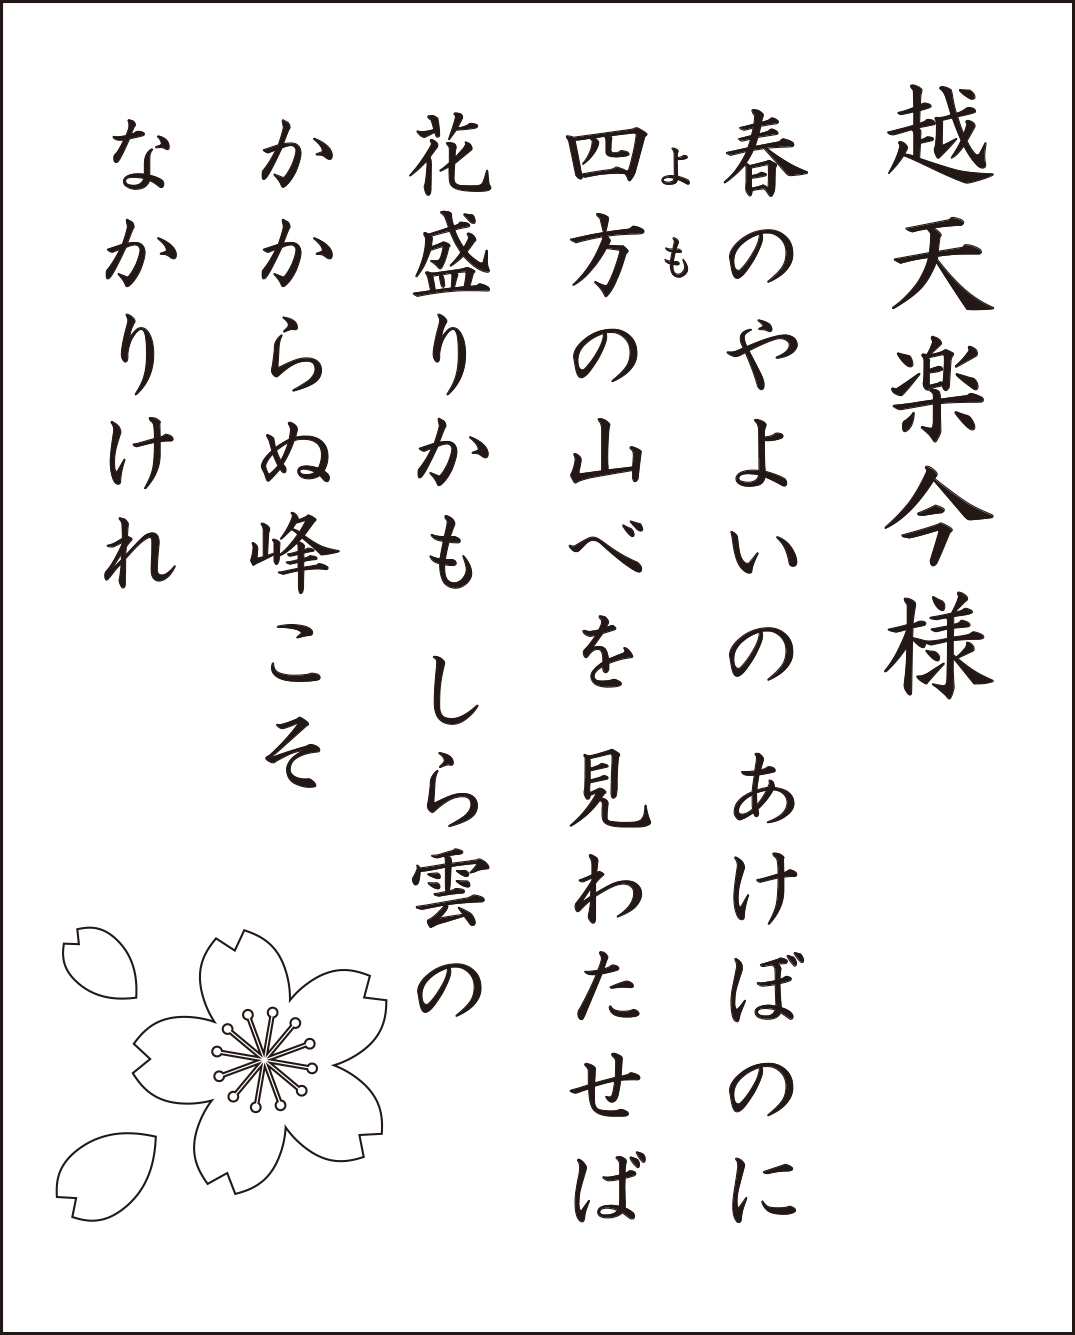 越天楽今様
春のやよいの あけぼのに
四方の山べを 見わたせば
よも
花盛りかも しら雲の
かからぬ峰こそ
なかりけれ